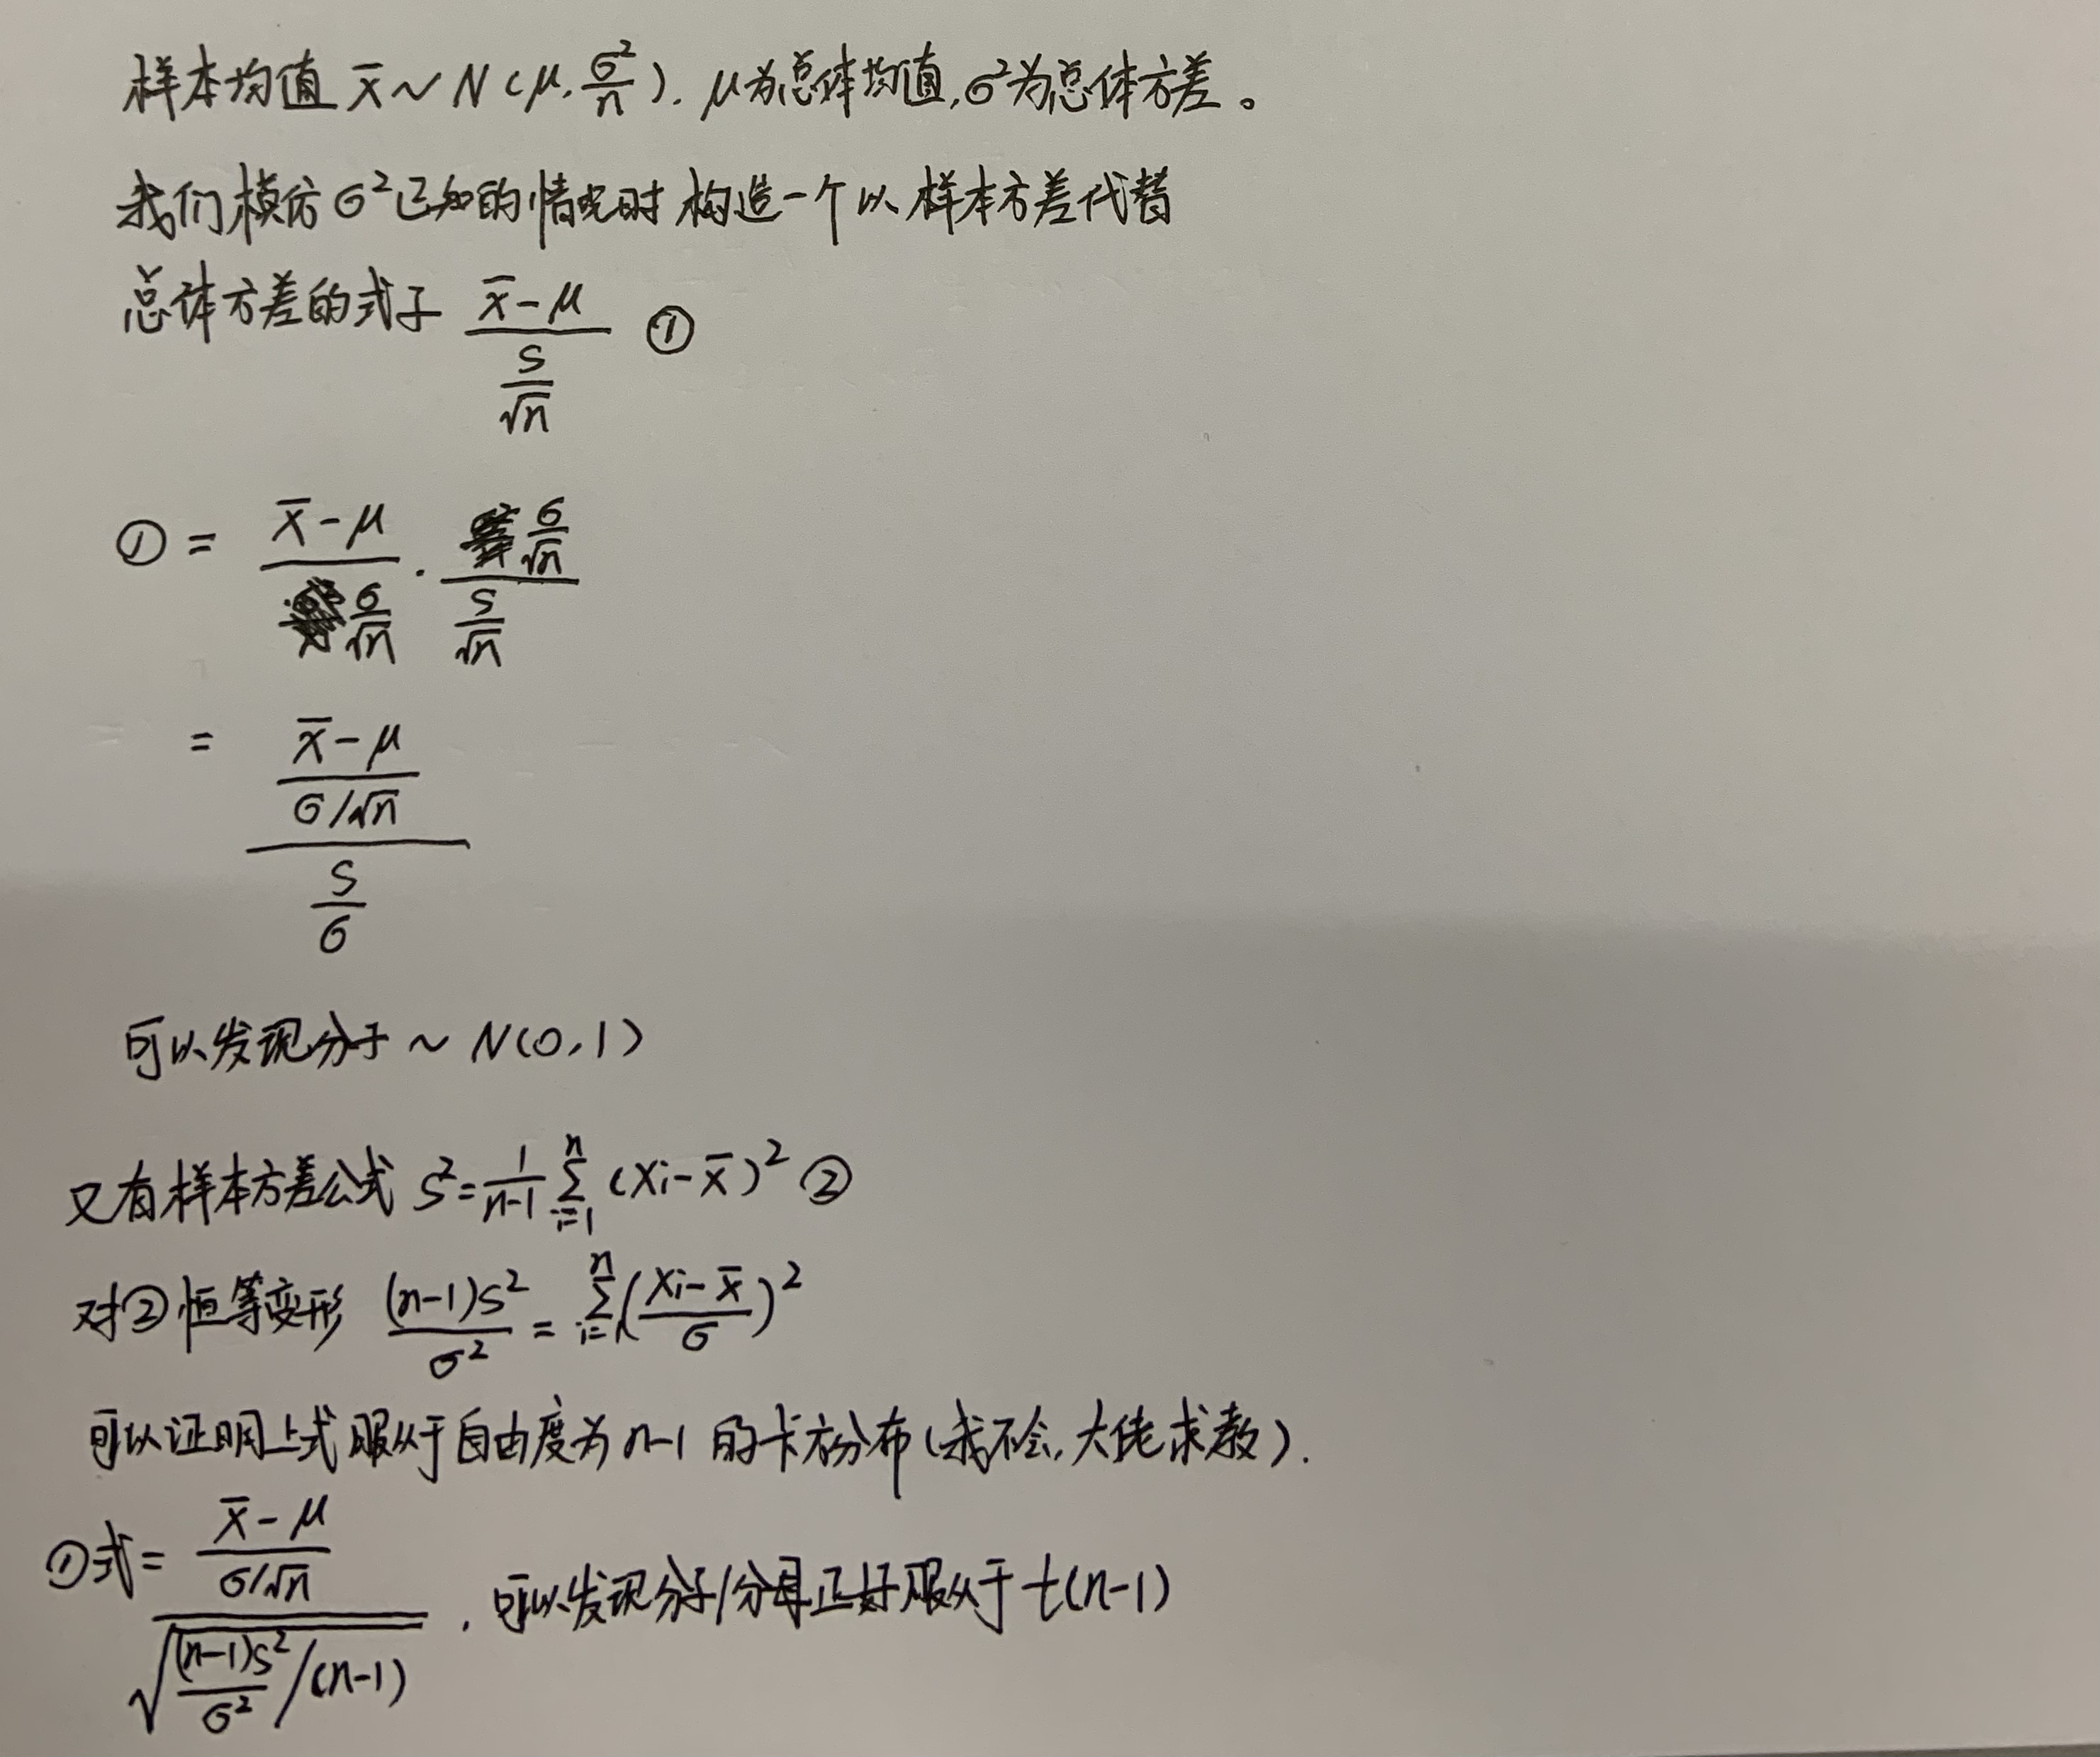 样本均值 x̄ ~ N(μ, σ²/n). μ为总体均值,σ²为总体方差。
我们模仿σ²已知的情况时 构造一个以样本方差代替
总体方差的式子 (x̄-μ)/(S/√n) ①
① = (x̄-μ)/(σ/√n) · (σ/√n)/(S/√n)
= ((x̄-μ)/(σ/√n))/(S/σ)
可以发现分子 ~ N(0,1)
又有样本方差公式 S²=1/(n-1) ∑_{i=1}^{n} (Xi-x̄)² ②
对②恒等变形 (n-1)S²/σ² = ∑_{i=1}^{n}((Xi-x̄)/σ)²
可以证明上式服从于自由度为 n-1 的卡方分布(我不会,大佬求教).
①式= ((x̄-μ)/(σ/√n))/√((n-1)S²/σ²/(n-1)) , 可以发现分子/分母正好服从于 t(n-1)